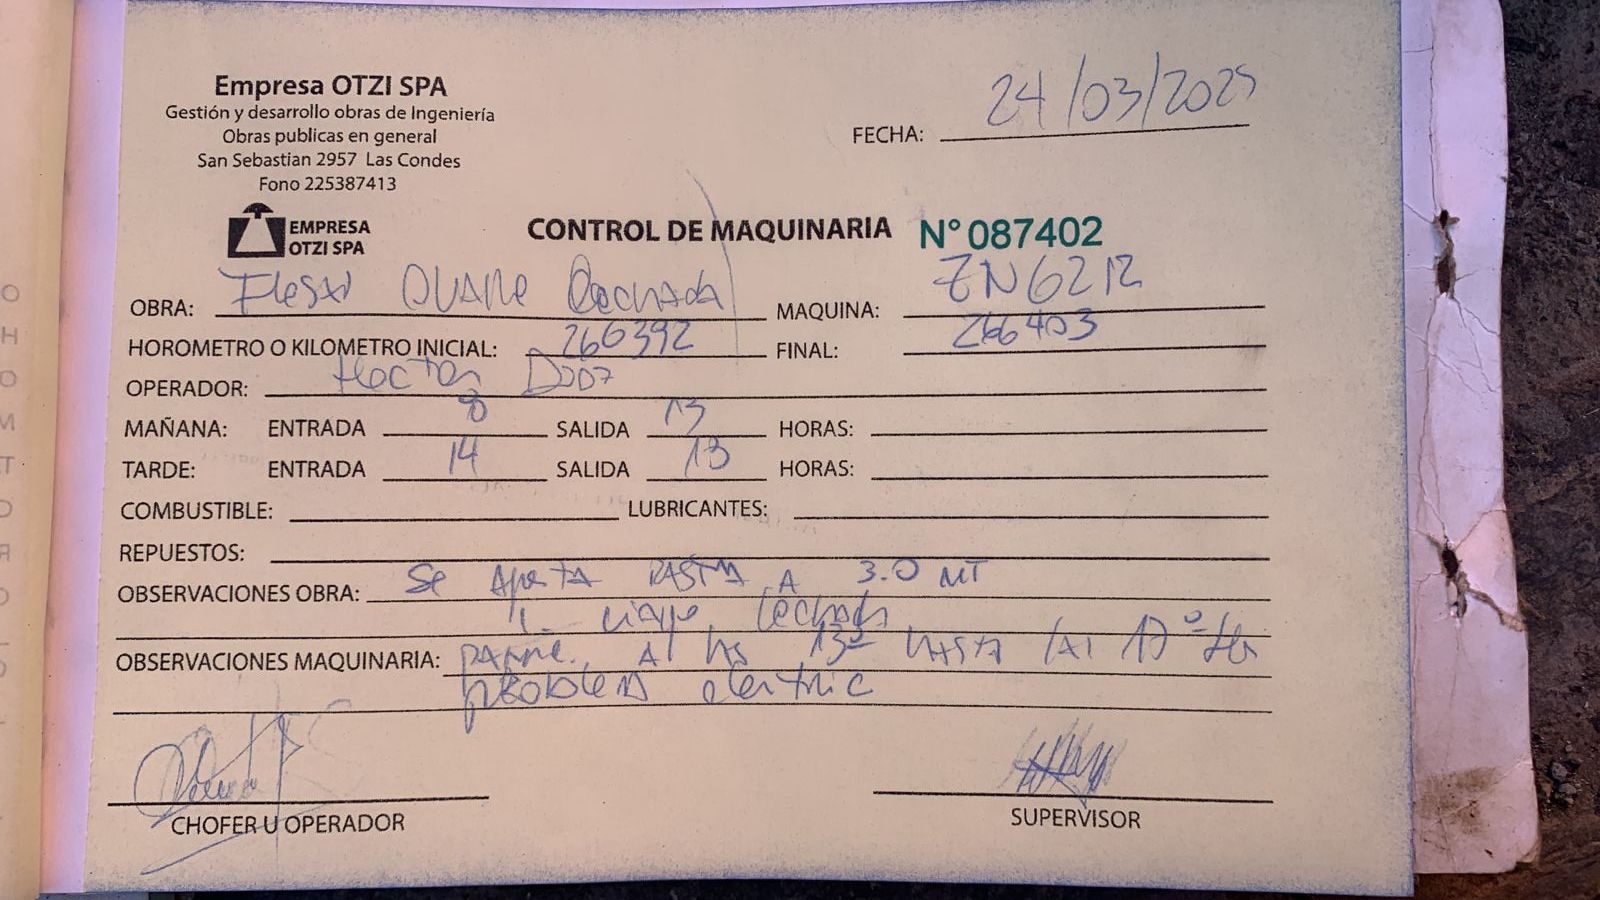 Empresa OTZI SPA
Gestión y desarrollo obras de Ingeniería
Obras publicas en general
San Sebastian 2957 Las Condes
Fono 225387413
FECHA: 24/03/2025
EMPRESA
OTZI SPA
CONTROL DE MAQUINARIA N° 087402
OBRA: MAQUINA: ZN6212
HOROMETRO O KILOMETRO INICIAL: 266392 FINAL: 266403
OPERADOR: Hector
MAÑANA: ENTRADA 8 SALIDA 13 HORAS:
TARDE: ENTRADA 14 SALIDA 13 HORAS:
COMBUSTIBLE: LUBRICANTES:
REPUESTOS:
OBSERVACIONES OBRA: Se A 3.0 MT
1 viaje lechada
OBSERVACIONES MAQUINARIA: panne. A hs 13º hasta las
electric
CHOFER U OPERADOR
SUPERVISOR